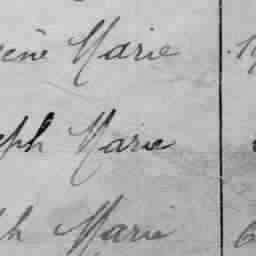 ène Marie
eph Marie
h Marie